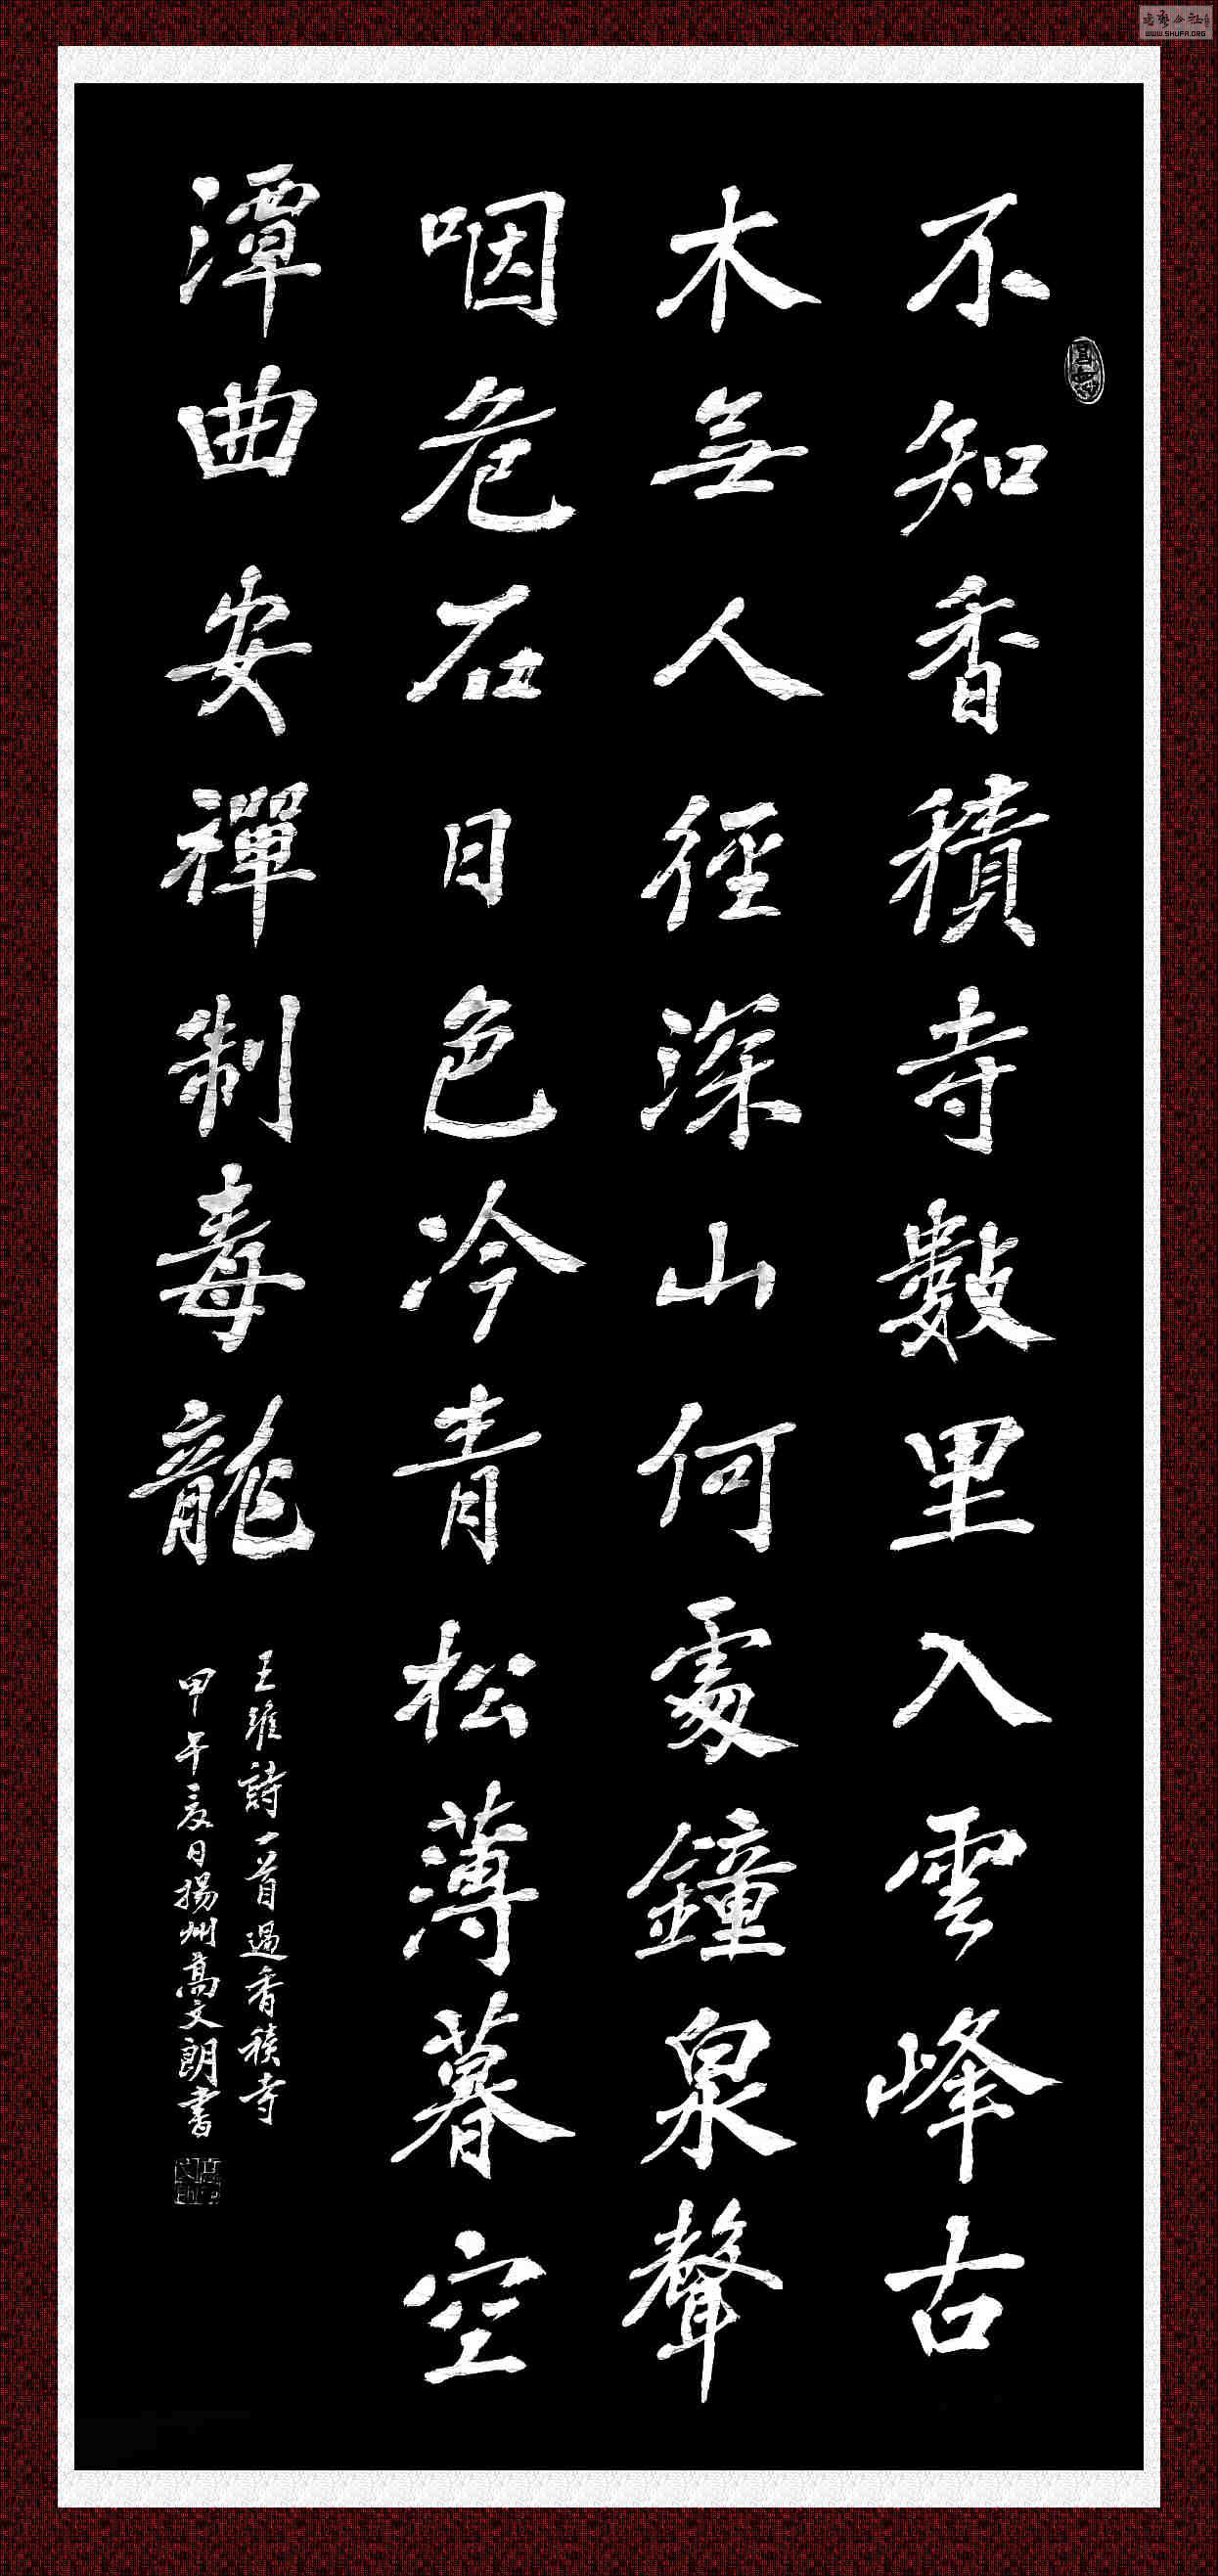 不知香積寺數里入雲峰古
木無人徑深山何處鐘泉聲
咽危石日色冷青松薄暮空
潭曲安禪制毒龍
王維詩一首過香積寺
甲午夏日揚州高文朗書
WWW.SHUFA.ORG